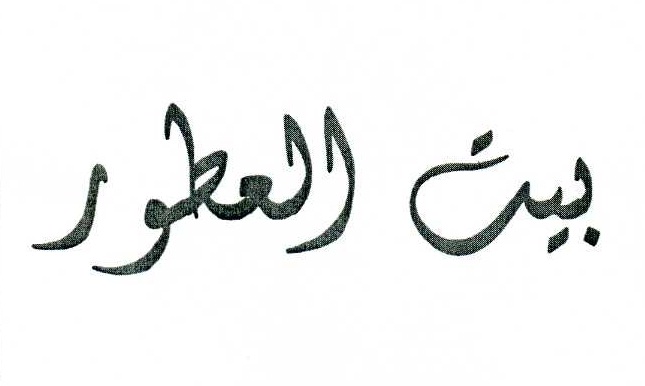 بيت العطور